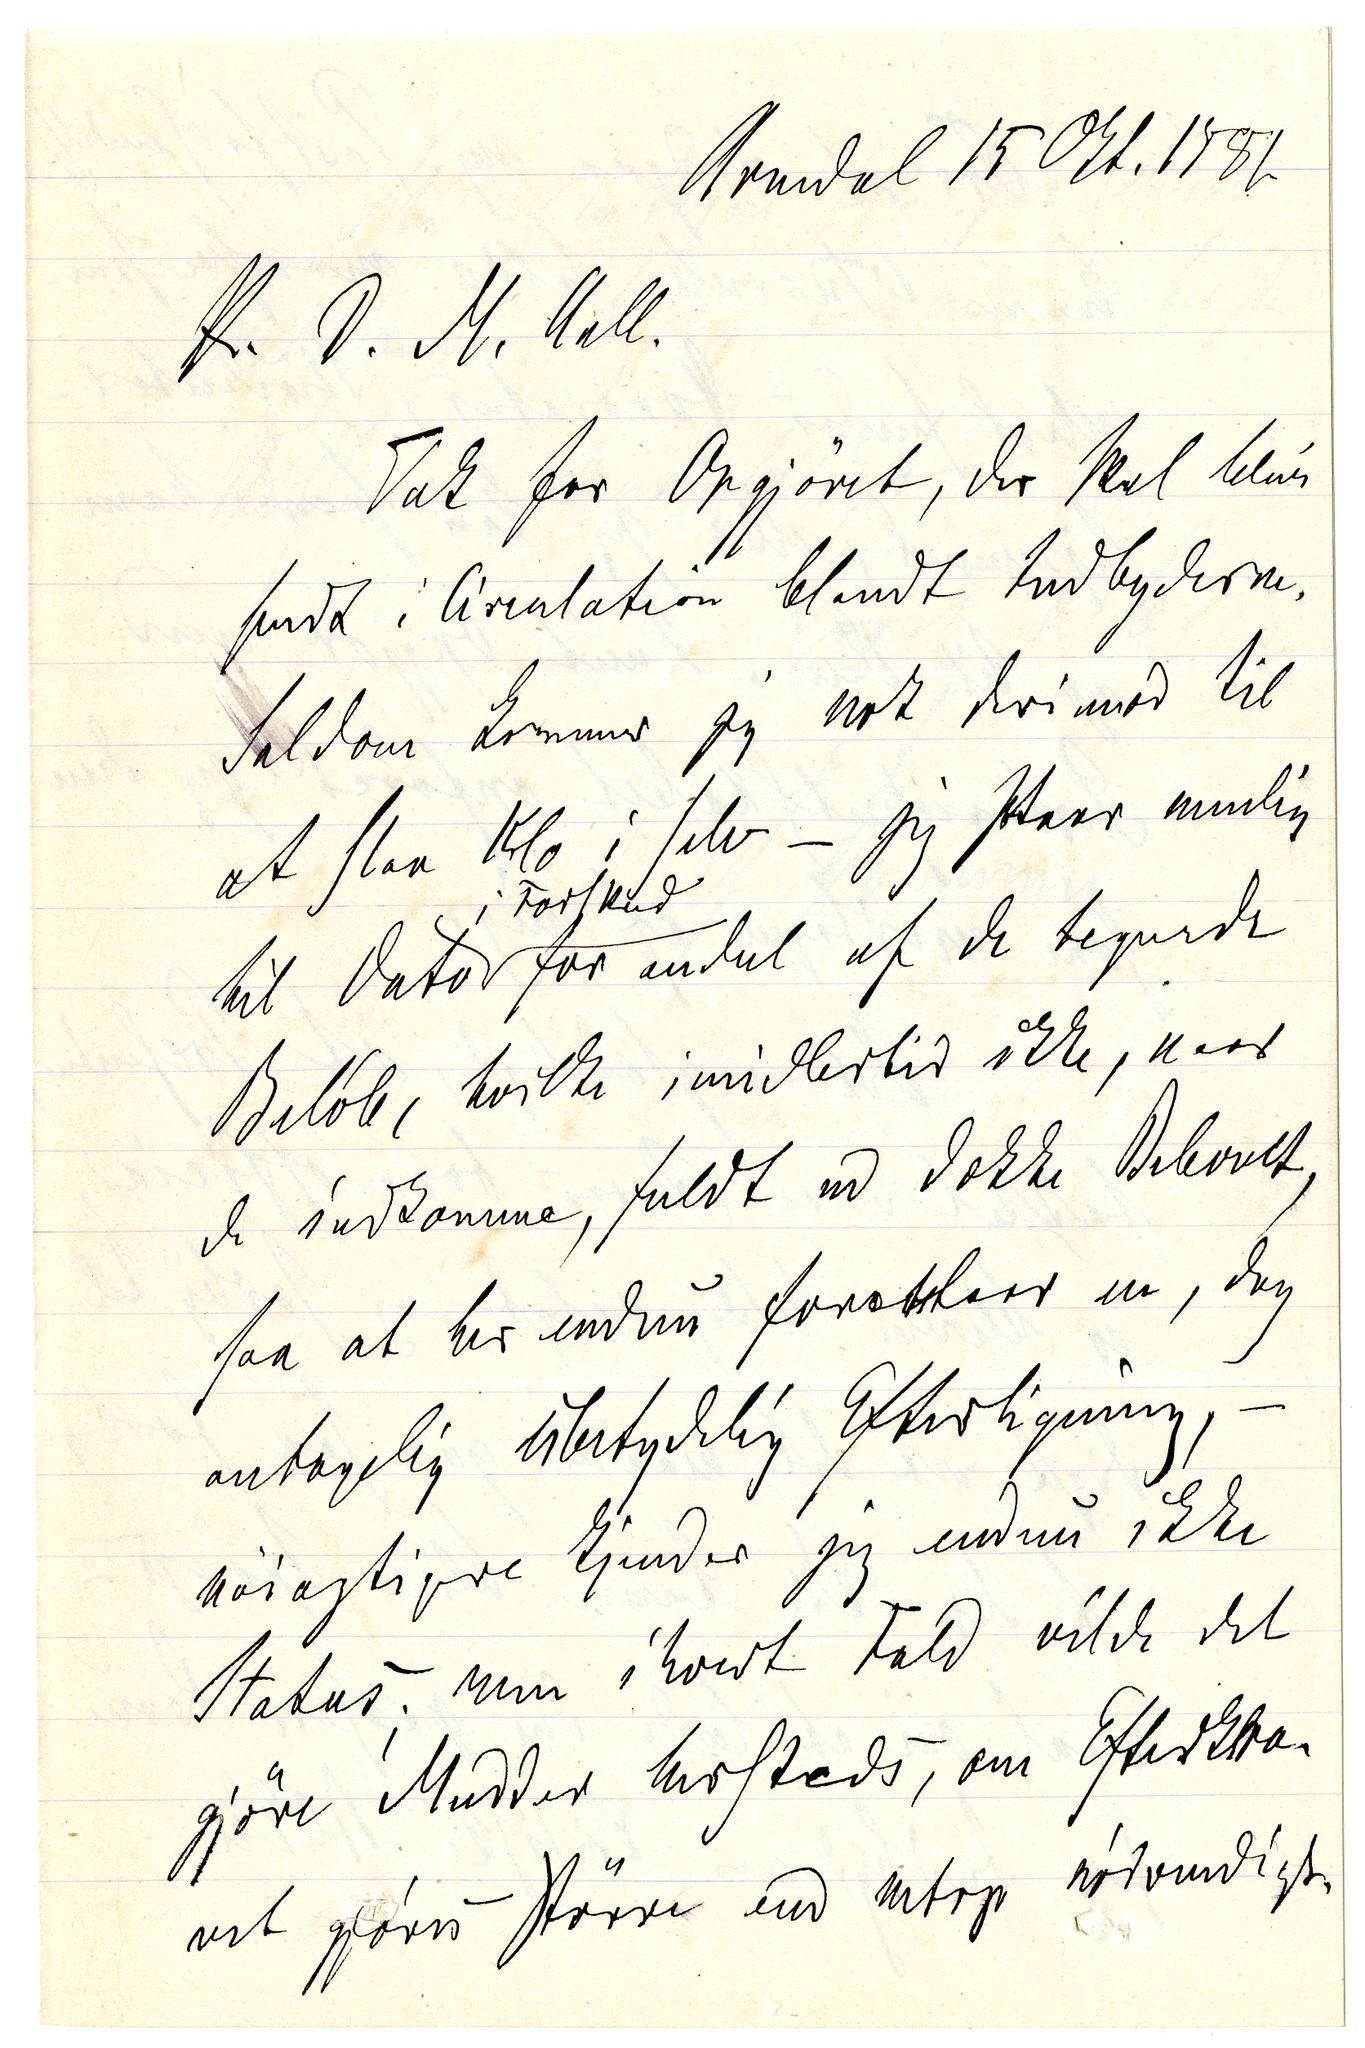 Arendal 15 Okt. 1881.
Hr. D. M. Aall.
Tak for Opgjöret, der skal blive
sendt i Circulation blandt Indbyderne.
Saldoen kommer jeg nok derimod til
at slaa Klo i selv – jeg staar nemlig
i Forskud
til Dato for endel af de tegnede
Belöb, hvilke imidlertid ikke, naar
de indkomme, fuldt ud dække Behovet,
saa at her endnu forestaar en, dog
antagelig ubetydelig Efterligning, –
nöiagtigere kjender jeg endnu ikke
Status; men ihvert Fald vilde det
gjöre Mudder hersteds, om Efterkra-
vet gjöres större end netop nödvendigt.